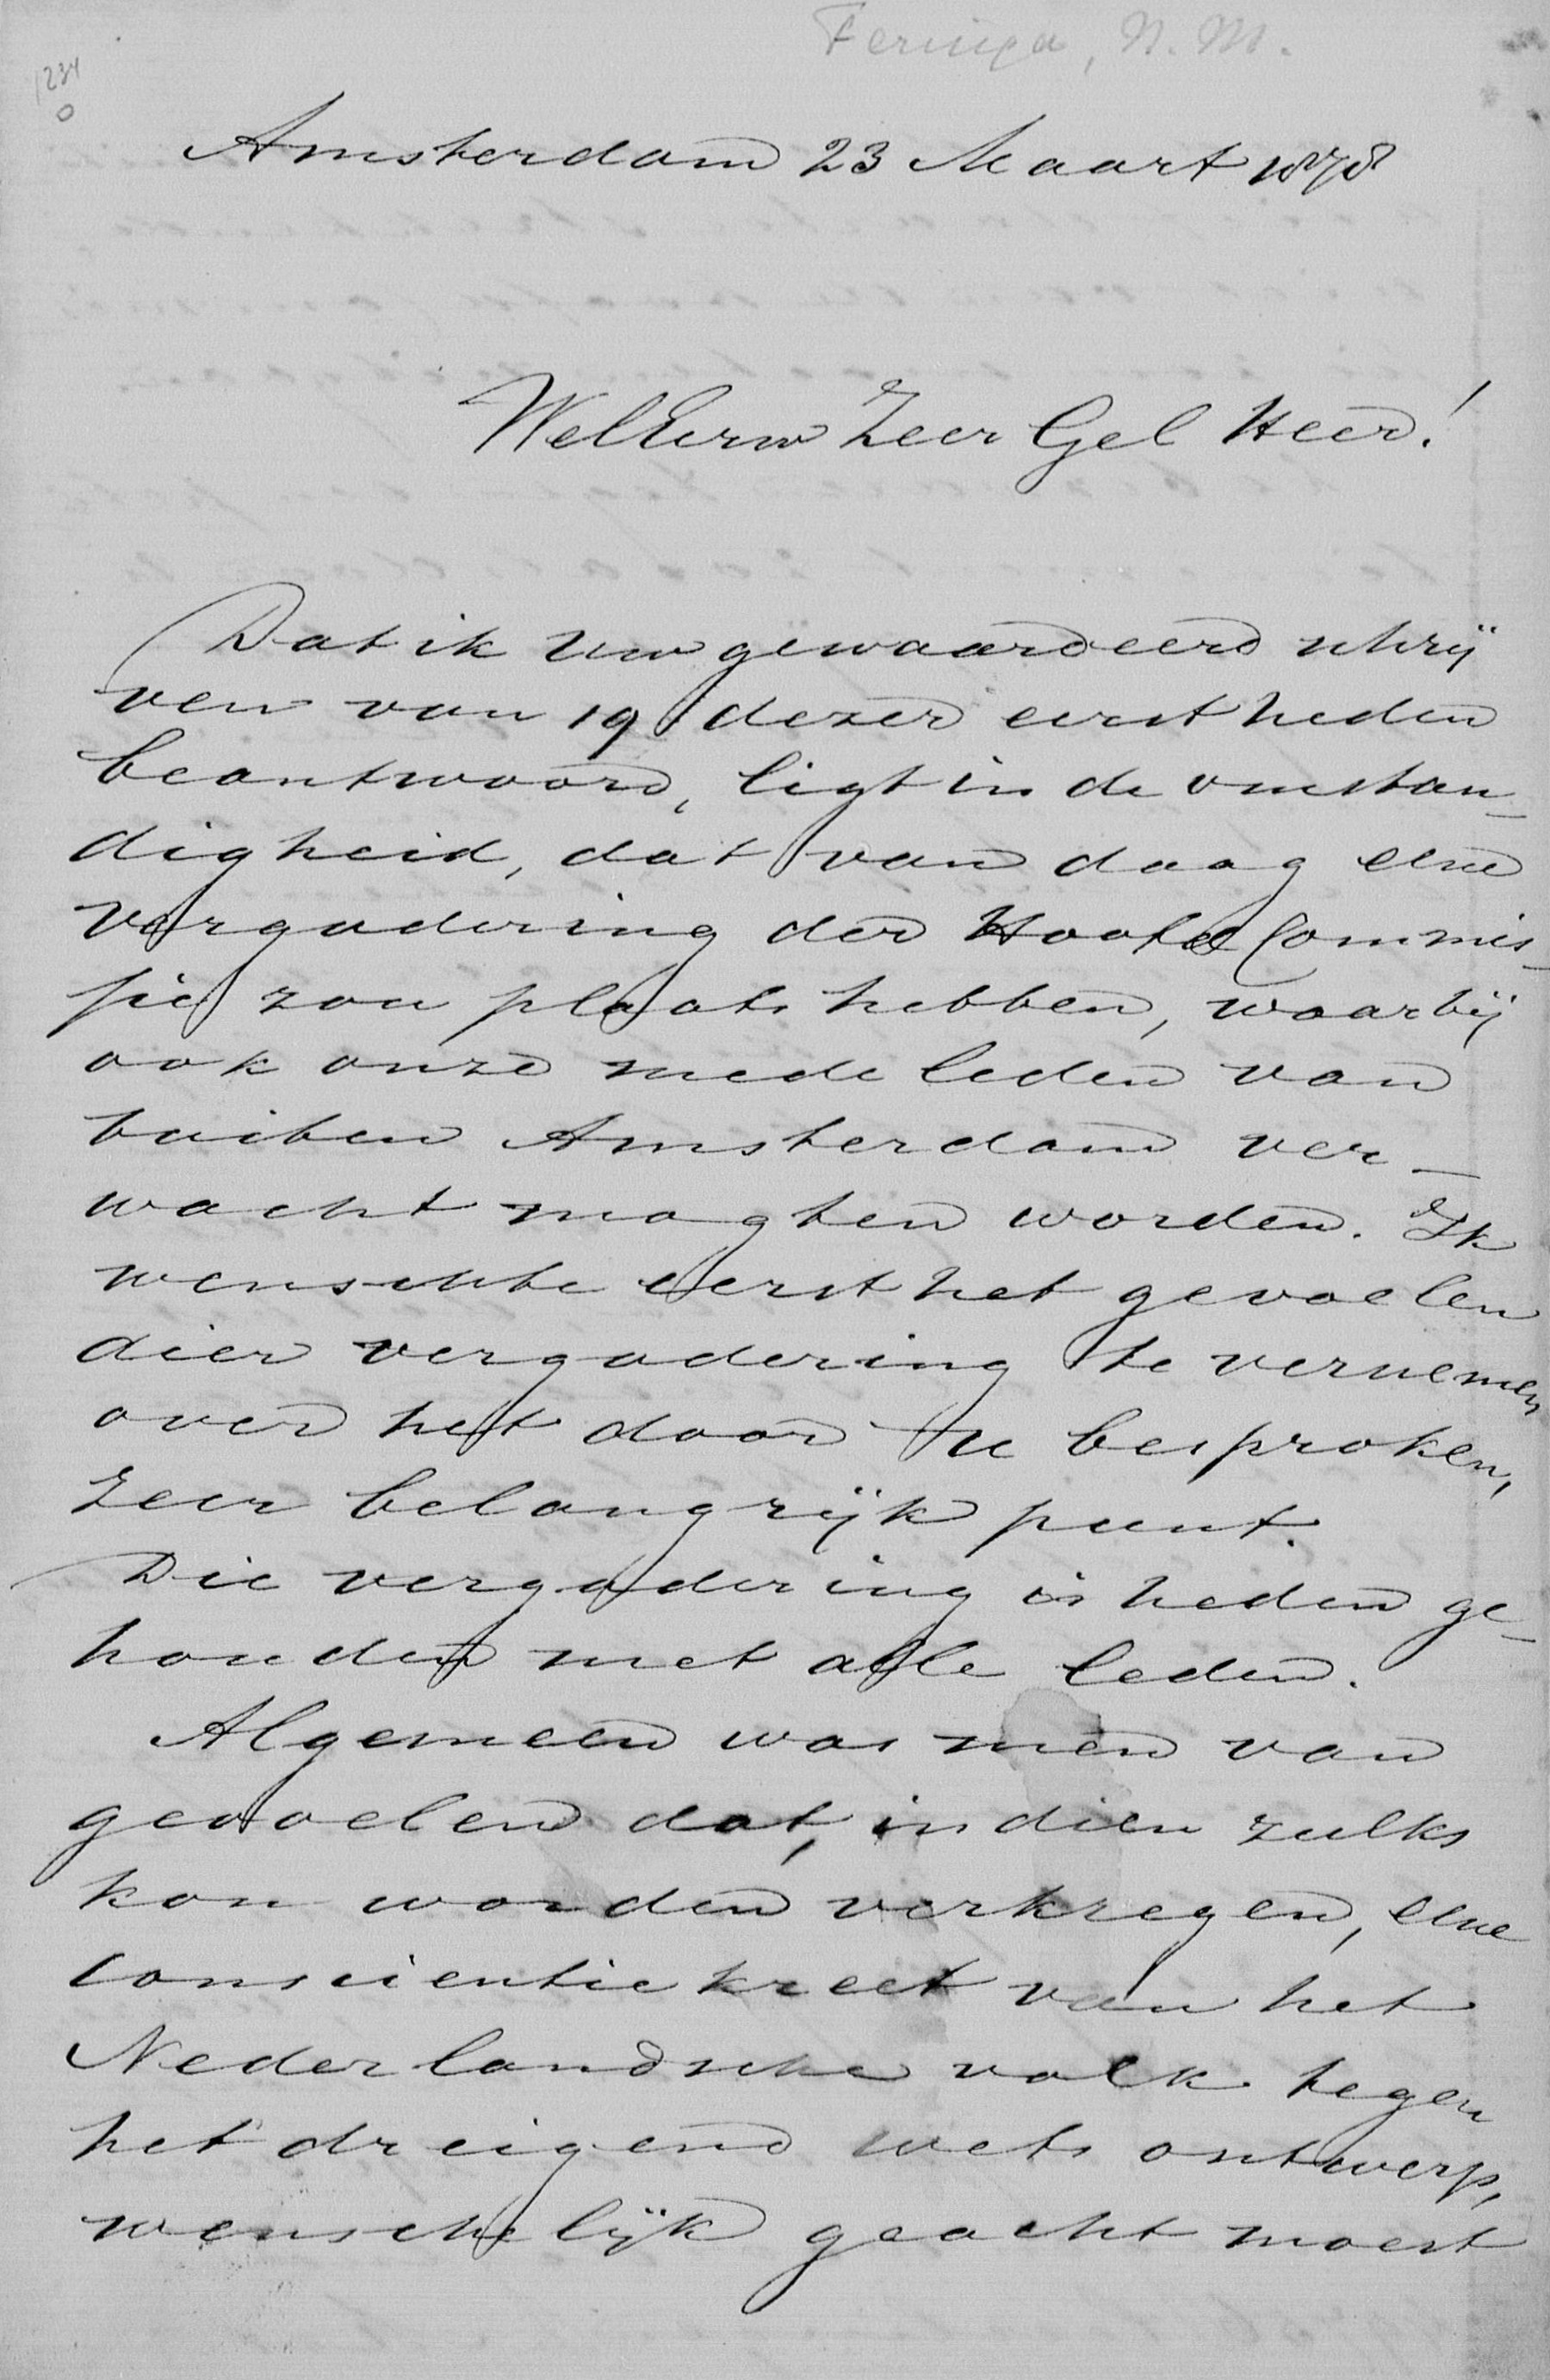 Feringa, N. M.
1234
0
Amsterdam 23 Maart 1878
WelEerw Zeer Gel Heer!
Dat ik Uw gewaardeerd schrij
ven van 19 dezer eerst heden
beantwoord, ligt in de omstan-
digheid, dat van daag eene
vergadering der Hoofd Commis-
sie zou plaats hebben, waarbij
ook onze mede leden van
buiten Amsterdam ver-
wacht mogten worden. Ik
wenschte eerst het gevoelen
dier vergadering te vernemen
over het door U besproken,
zeer belangrijk punt.
Die vergadering is heden ge-
houden met alle leden.
Algemeen was men van
gevoelen dat, indien zulks
kon worden verkregen, eene
conscientie kreet van het
Nederlandsche volk tegen
het dreigend wets ontwerp,
wenschelijk geacht moest